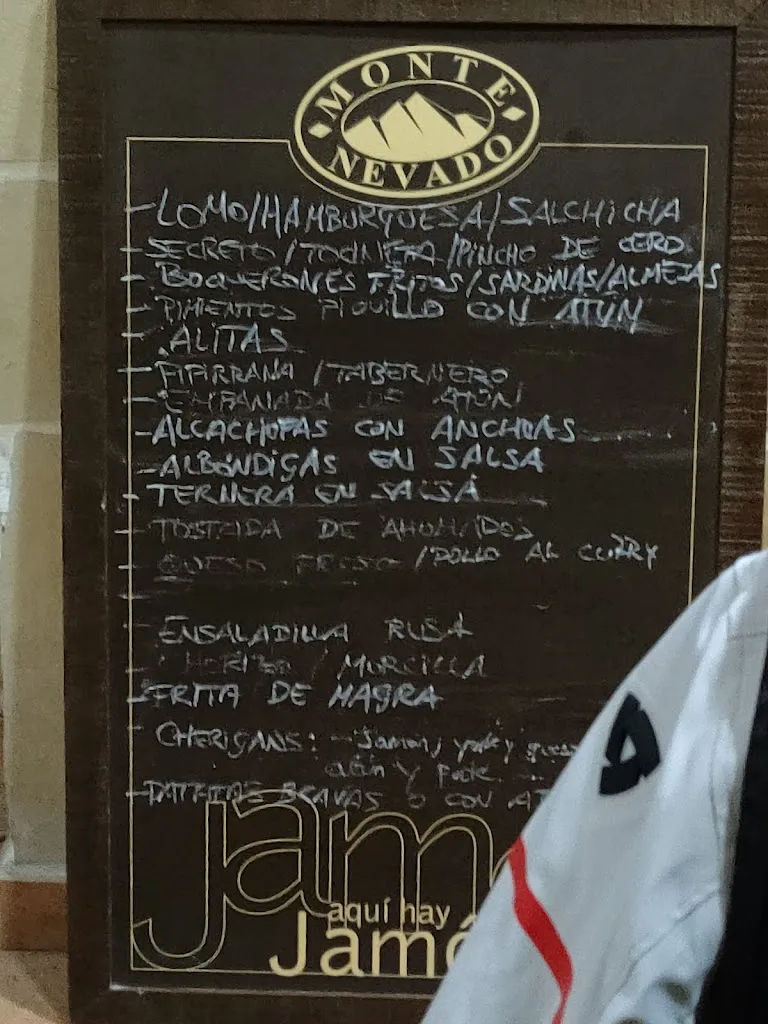 MONTE NEVADO
-LOMO/HAMBURGUESA/SALCHICHA
-SECRETO/TOCINETA/PINCHO DE CERDO
-BOQUERONES FRITOS/SARDINAS/ALMEJAS
-PIMIENTOS PIQUILLO CON ATÚN
-ALITAS
-PIPIRRANA/TABERNERO
-EMPANADA DE ATÚN
-ALCACHOFAS CON ANCHOAS
-ALBÓNDIGAS EN SALSA
-TERNERA EN SALSA
-TOSTADA DE AHUMADOS
-QUESO FRESCO/POLLO AL CURRY
ENSALADILLA RUSA
-CHORIZO/MORCILLA
-FRITA DE MAGRA
-CHERIGANS: -Jamón, y queso
atún y
BRAVAS O CON
Jam
aquí hay
Jamó